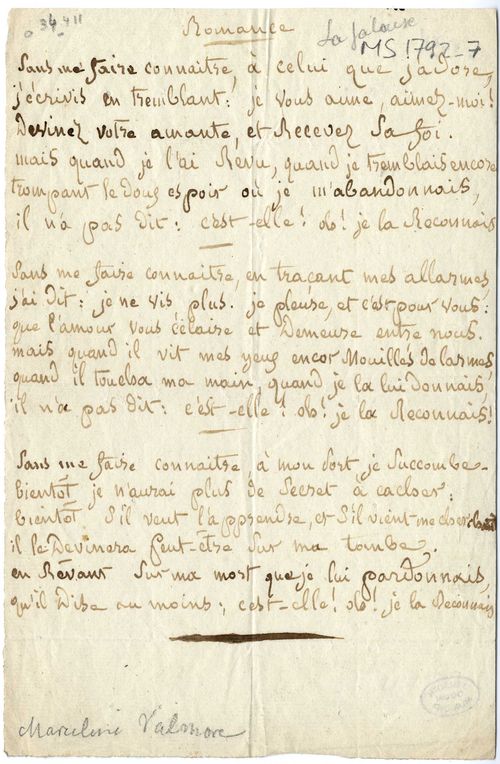 34 411
Romance
La jalouse
MS 1792-7
Sans me faire connaitre, à celui que j'adore,
j'écrivis en tremblant: je vous aime, aimez-moi!
Devinez votre amante, et Recevez Sa foi.
mais quand je l'ai Revu, quand je tremblais encore
trompant le doux espoir où je m'abandonnais,
il n'a pas dit: c'est-elle! oh! je la Reconnais
Sans me faire connaitre, en traçant mes allarmes,
j'ai dit: je ne vis plus. je pleure, et c'est pour vous:
que l'amour vous éclaire et Demeure entre nous.
mais quand il vit mes yeux encor Mouillés de larmes,
quand il toucha ma main, quand je la lui donnais,
il n'a pas dit: c'est-elle! oh! je la Reconnais!
Sans me faire connaitre, à mon Sort je Succombe.
bientôt je n'aurai plus de Secret à cacher:
bientôt S'il veut l'apprendre, et S'il vient me chercher
il le Devinera peut-être Sur ma tombe.
en Rêvant Sur ma mort que je lui pardonnais,
qu'il Dise au moins: c'est-elle! oh! je la Reconnais
Marceline Valmore